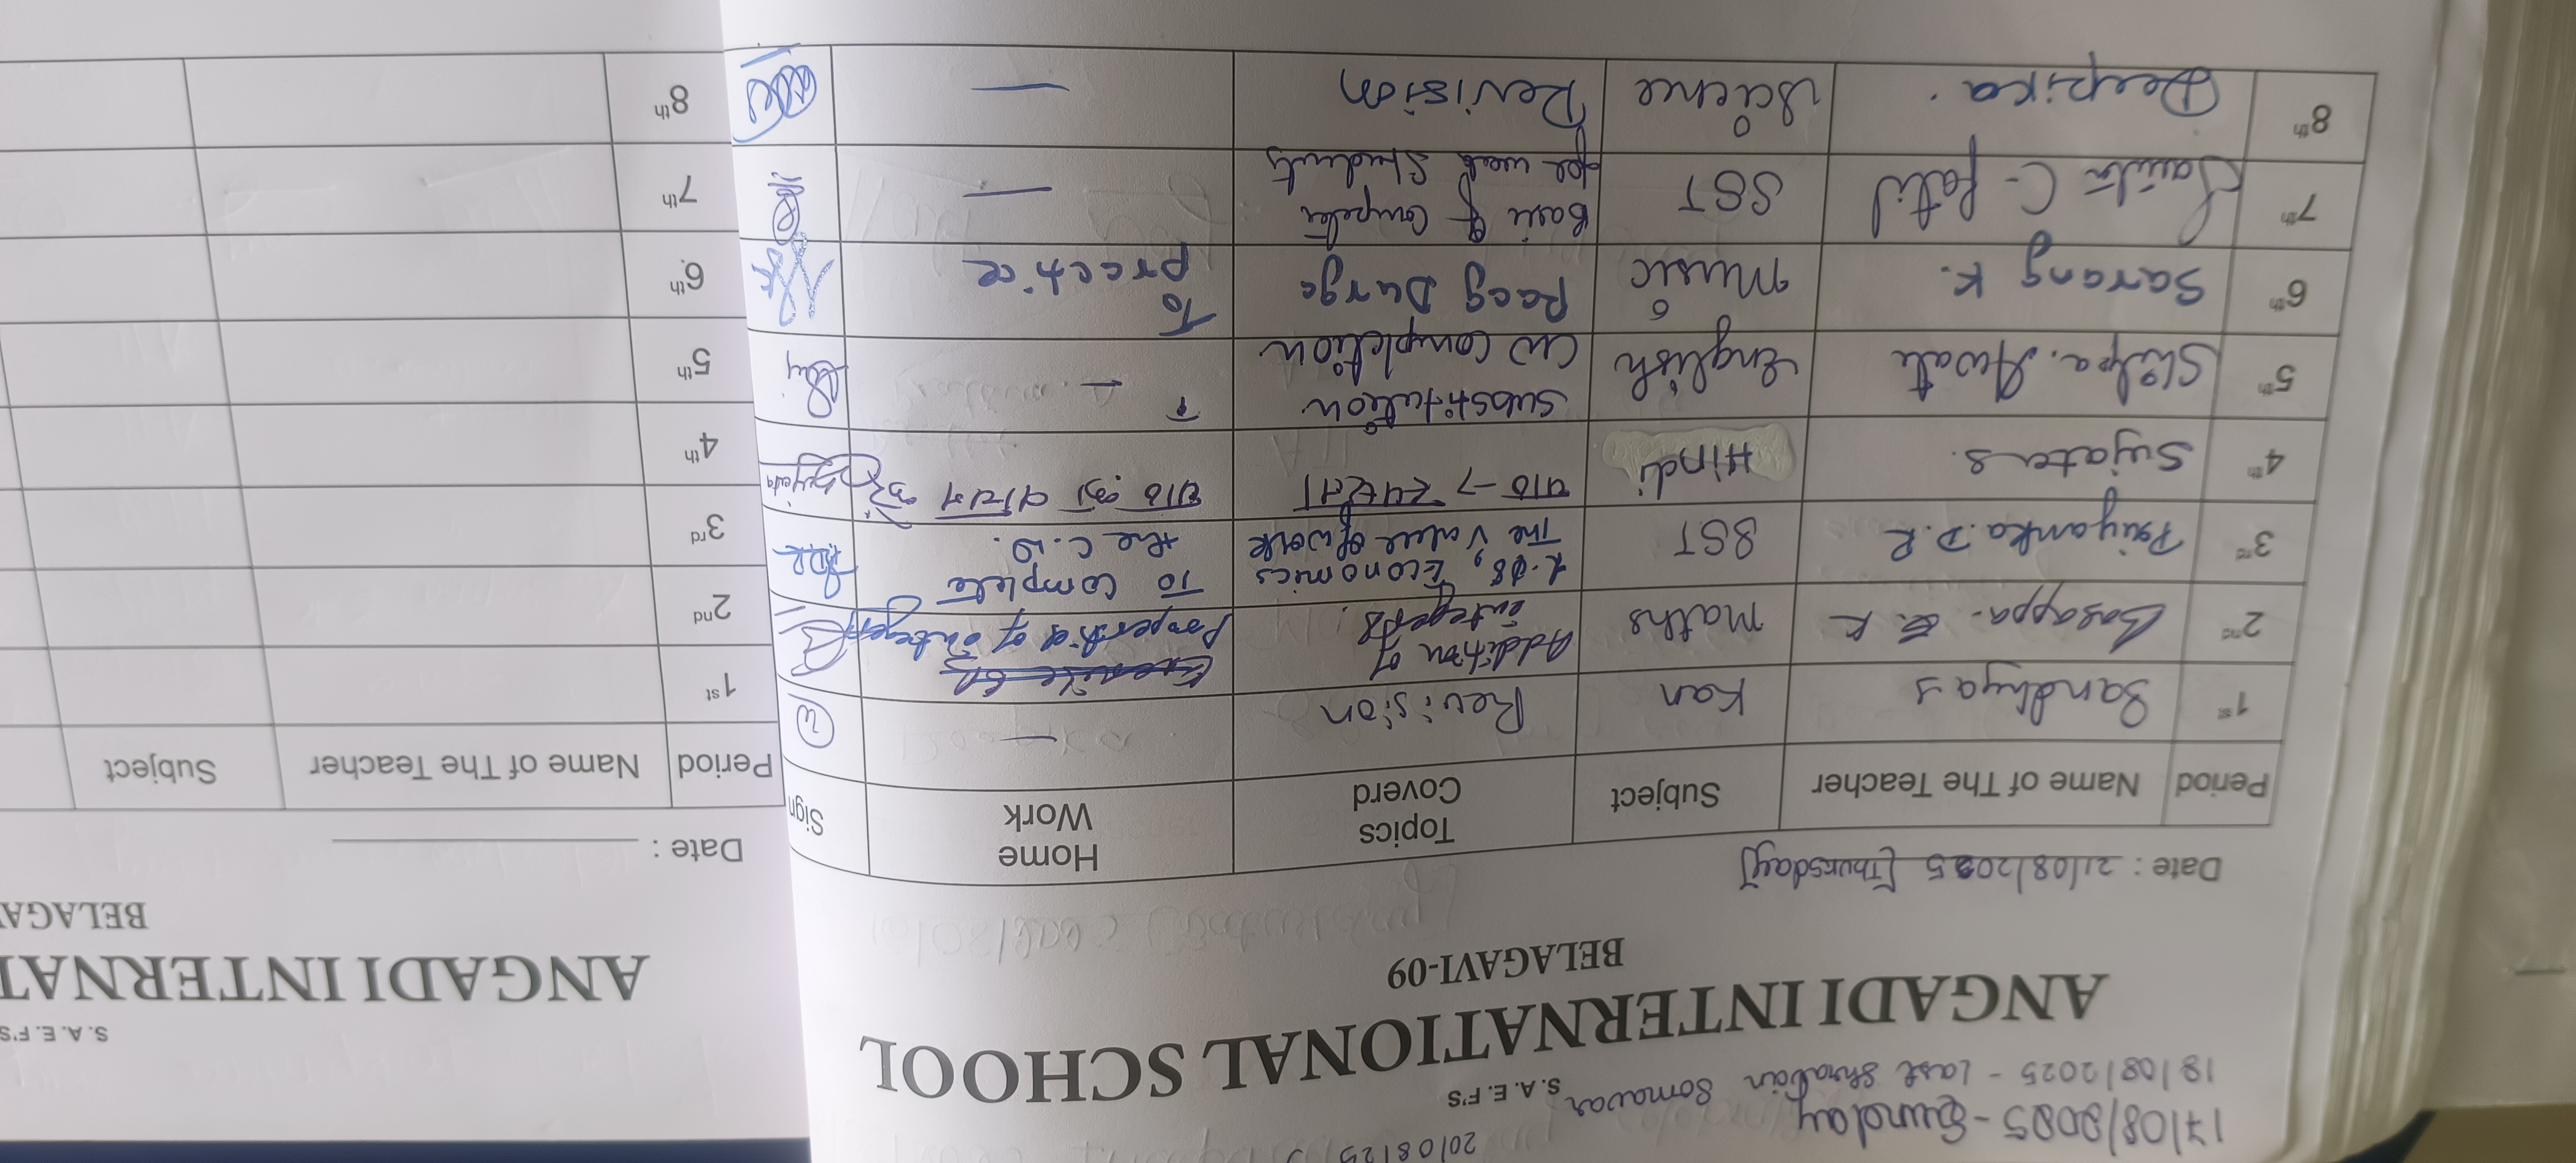 17/08/2025 - Sunday
18/08/2025 - Last Shravan Somavar
20/08/25
S. A. E. F'S
ANGADI INTERNATIONAL SCHOOL
BELAGAVI-09
Date : 21/08/2025 [Thursday]
Period Name of The Teacher Subject Topics Coverd Home Work Sign
1st Sandhya S Kan Revision —
2nd Basappa. K Maths Addition of integers. Properties of integers
3rd Priyanka. D. R SST L.08, Economics The Value of work To complete the C.W. PDR
4th Sujata S. Hindi पाठ → Sujata
5th Shilpa. Awati English Substitution CW Completion —
6th Sarang K. Music Raag Durga To practice
7th Savita C. Patil SST Basic of Computer for weak students —
8th Deepika. Science Revision —
S. A. E. F'S
ANGADI INTERNAT
BELAGA
Date :
Period Name of The Teacher Subject
1st
2nd
3rd
4th
5th
6th
7th
8th